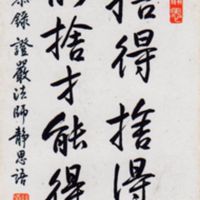 捨得捨得
能捨才能得
恭錄證嚴法師靜思語